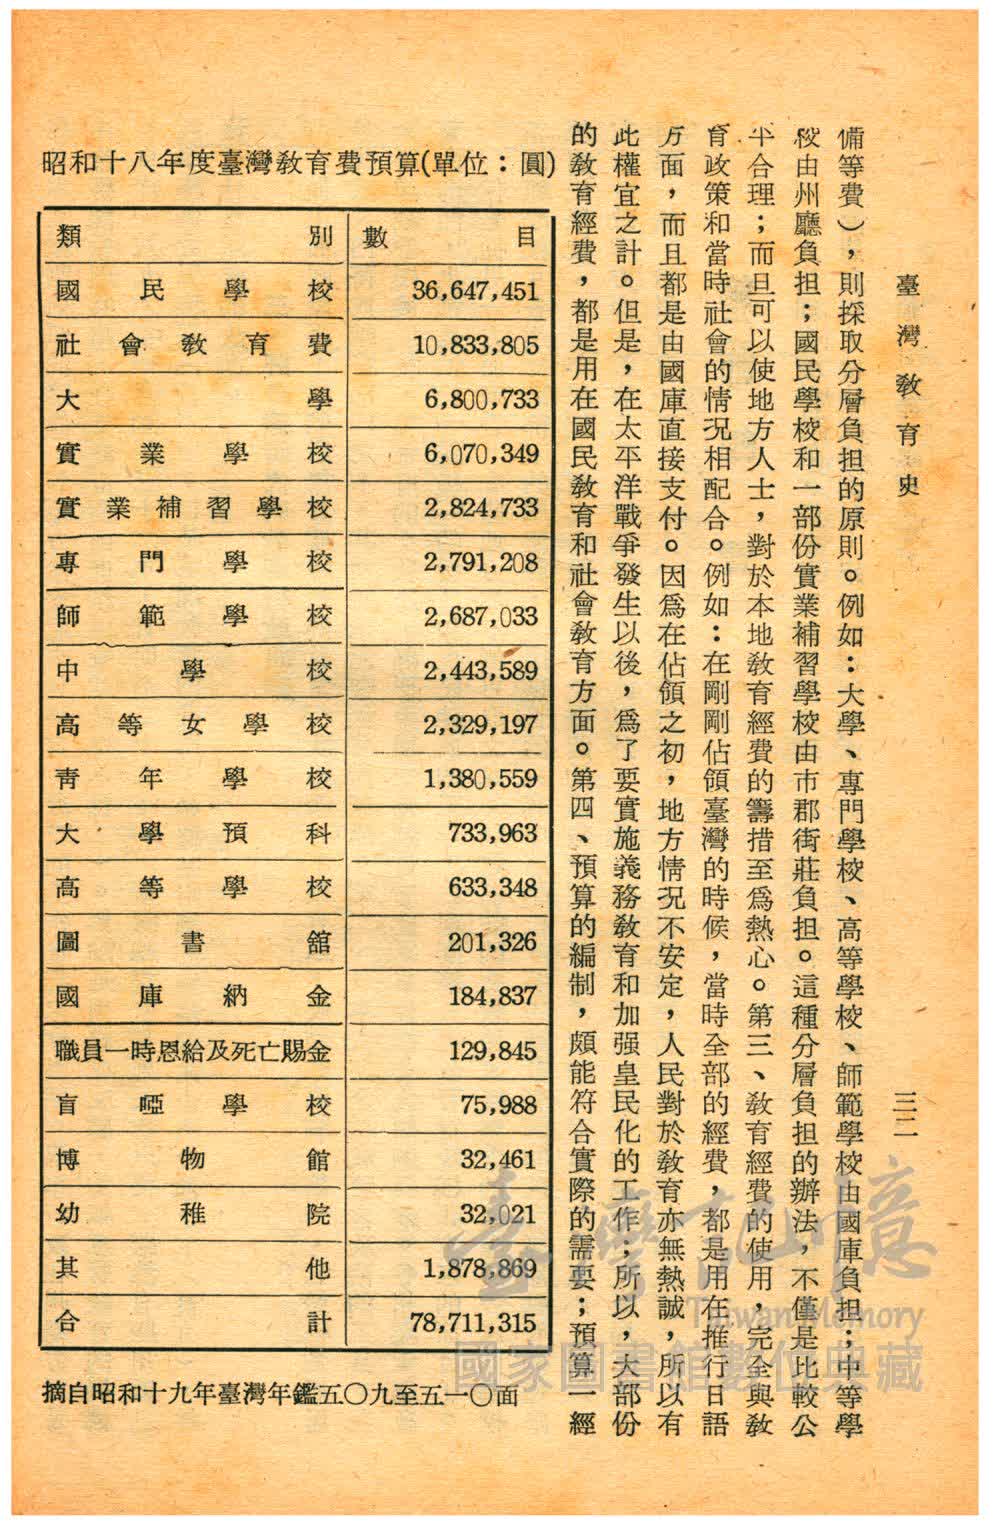 臺灣教育史
三二
備等費），則採取分層負担的原則。例如：大學、專門學校、高等學校、師範學校由國庫負担；中等學
校由州廳負担；國民學校和一部份實業補習學校由市郡街莊負担。這種分層負担的辦法，不僅是比較公
平合理；而且可以使地方人士，對於本地教育經費的籌措至爲熱心。第三、教育經費的使用，完全與教
育政策和當時社會的情況相配合。例如：在剛剛佔領臺灣的時候，當時全部的經費，都是用在推行日語
方面，而且都是由國庫直接支付。因爲在佔領之初，地方情況不安定，人民對於教育亦無熱誠，所以有
此權宜之計。但是，在太平洋戰爭發生以後，爲了要實施義務教育和加强皇民化的工作；所以，大部份
的教育經費，都是用在國民教育和社會教育方面。第四、預算的編制，頗能符合實際的需要；預算一經
昭和十八年度臺灣教育費預算(單位：圓)
類別 數目
國民學校 36,647,451
社會教育費 10,833,805
大學 6,800,733
實業學校 6,070,349
實業補習學校 2,824,733
專門學校 2,791,208
師範學校 2,687,033
中學校 2,443,589
高等女學校 2,329,197
青年學校 1,380,559
大學預科 733,963
高等學校 633,348
圖書館 201,326
國庫納金 184,837
職員一時恩給及死亡賜金 129,845
盲啞學校 75,988
博物館 32,461
幼稚院 32,021
其他 1,878,869
合計 78,711,315
摘自昭和十九年臺灣年鑑五〇九至五一〇面
臺灣記憶
Taiwan Memory
國家圖書館數位典藏